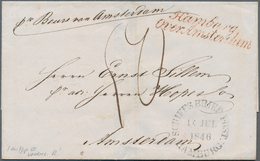 pr Beurs van Amsterdam
Hamburg
over Amsterdam
Herren Ernst Sillem
pr. adr. Herren Hope &
Amsterdam
SCHIFFS BRIEF POST
14 JUL
1846
HAMBURG